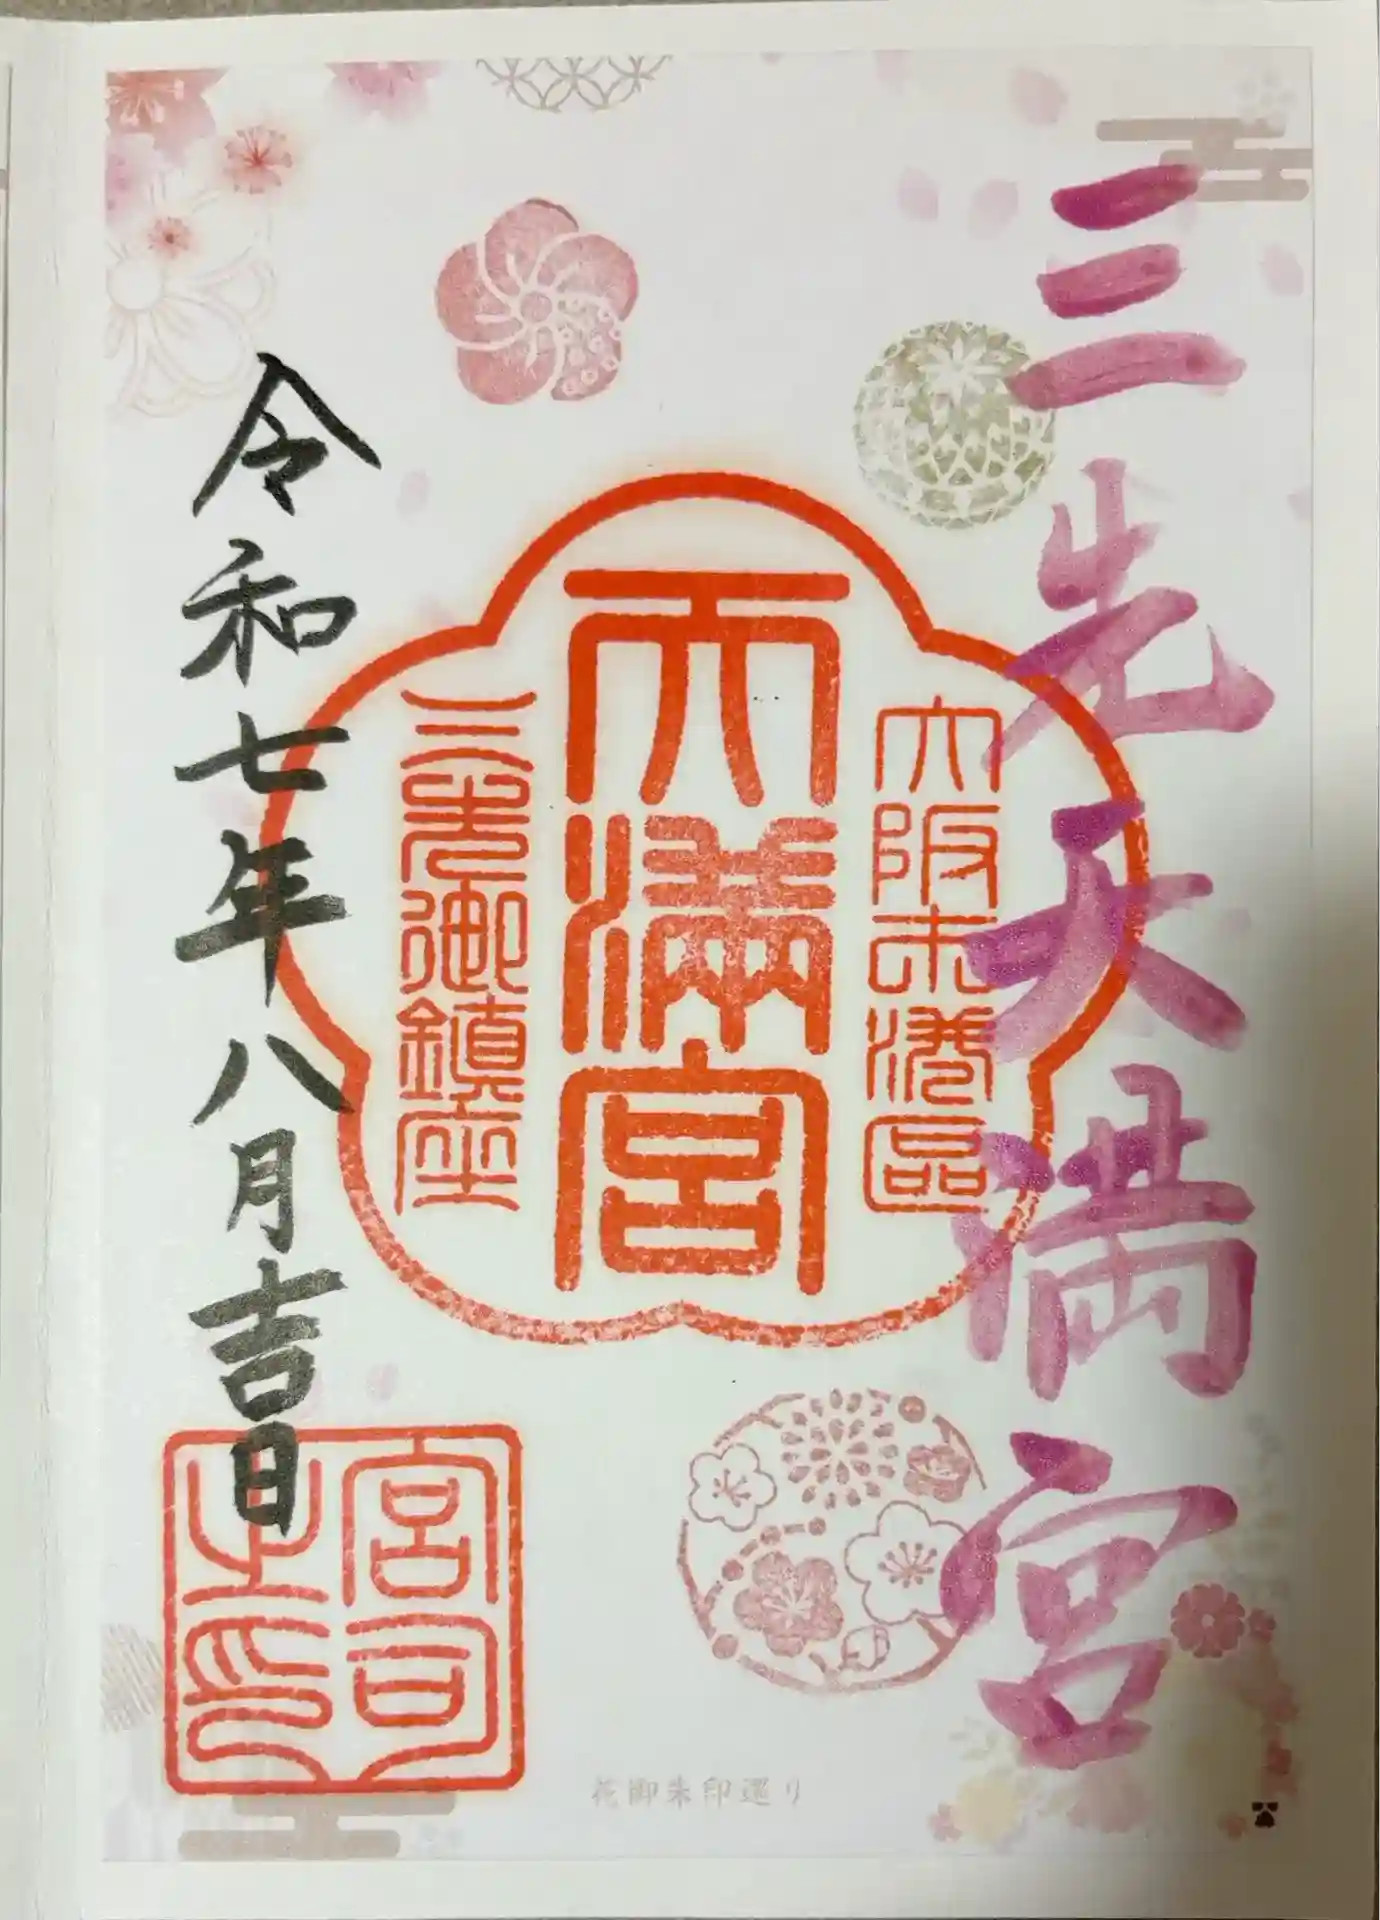 三先天満宮
大阪市港區
天満宮
三先御鎮座
令和七年八月吉日
宮司
之印
花御朱印巡り